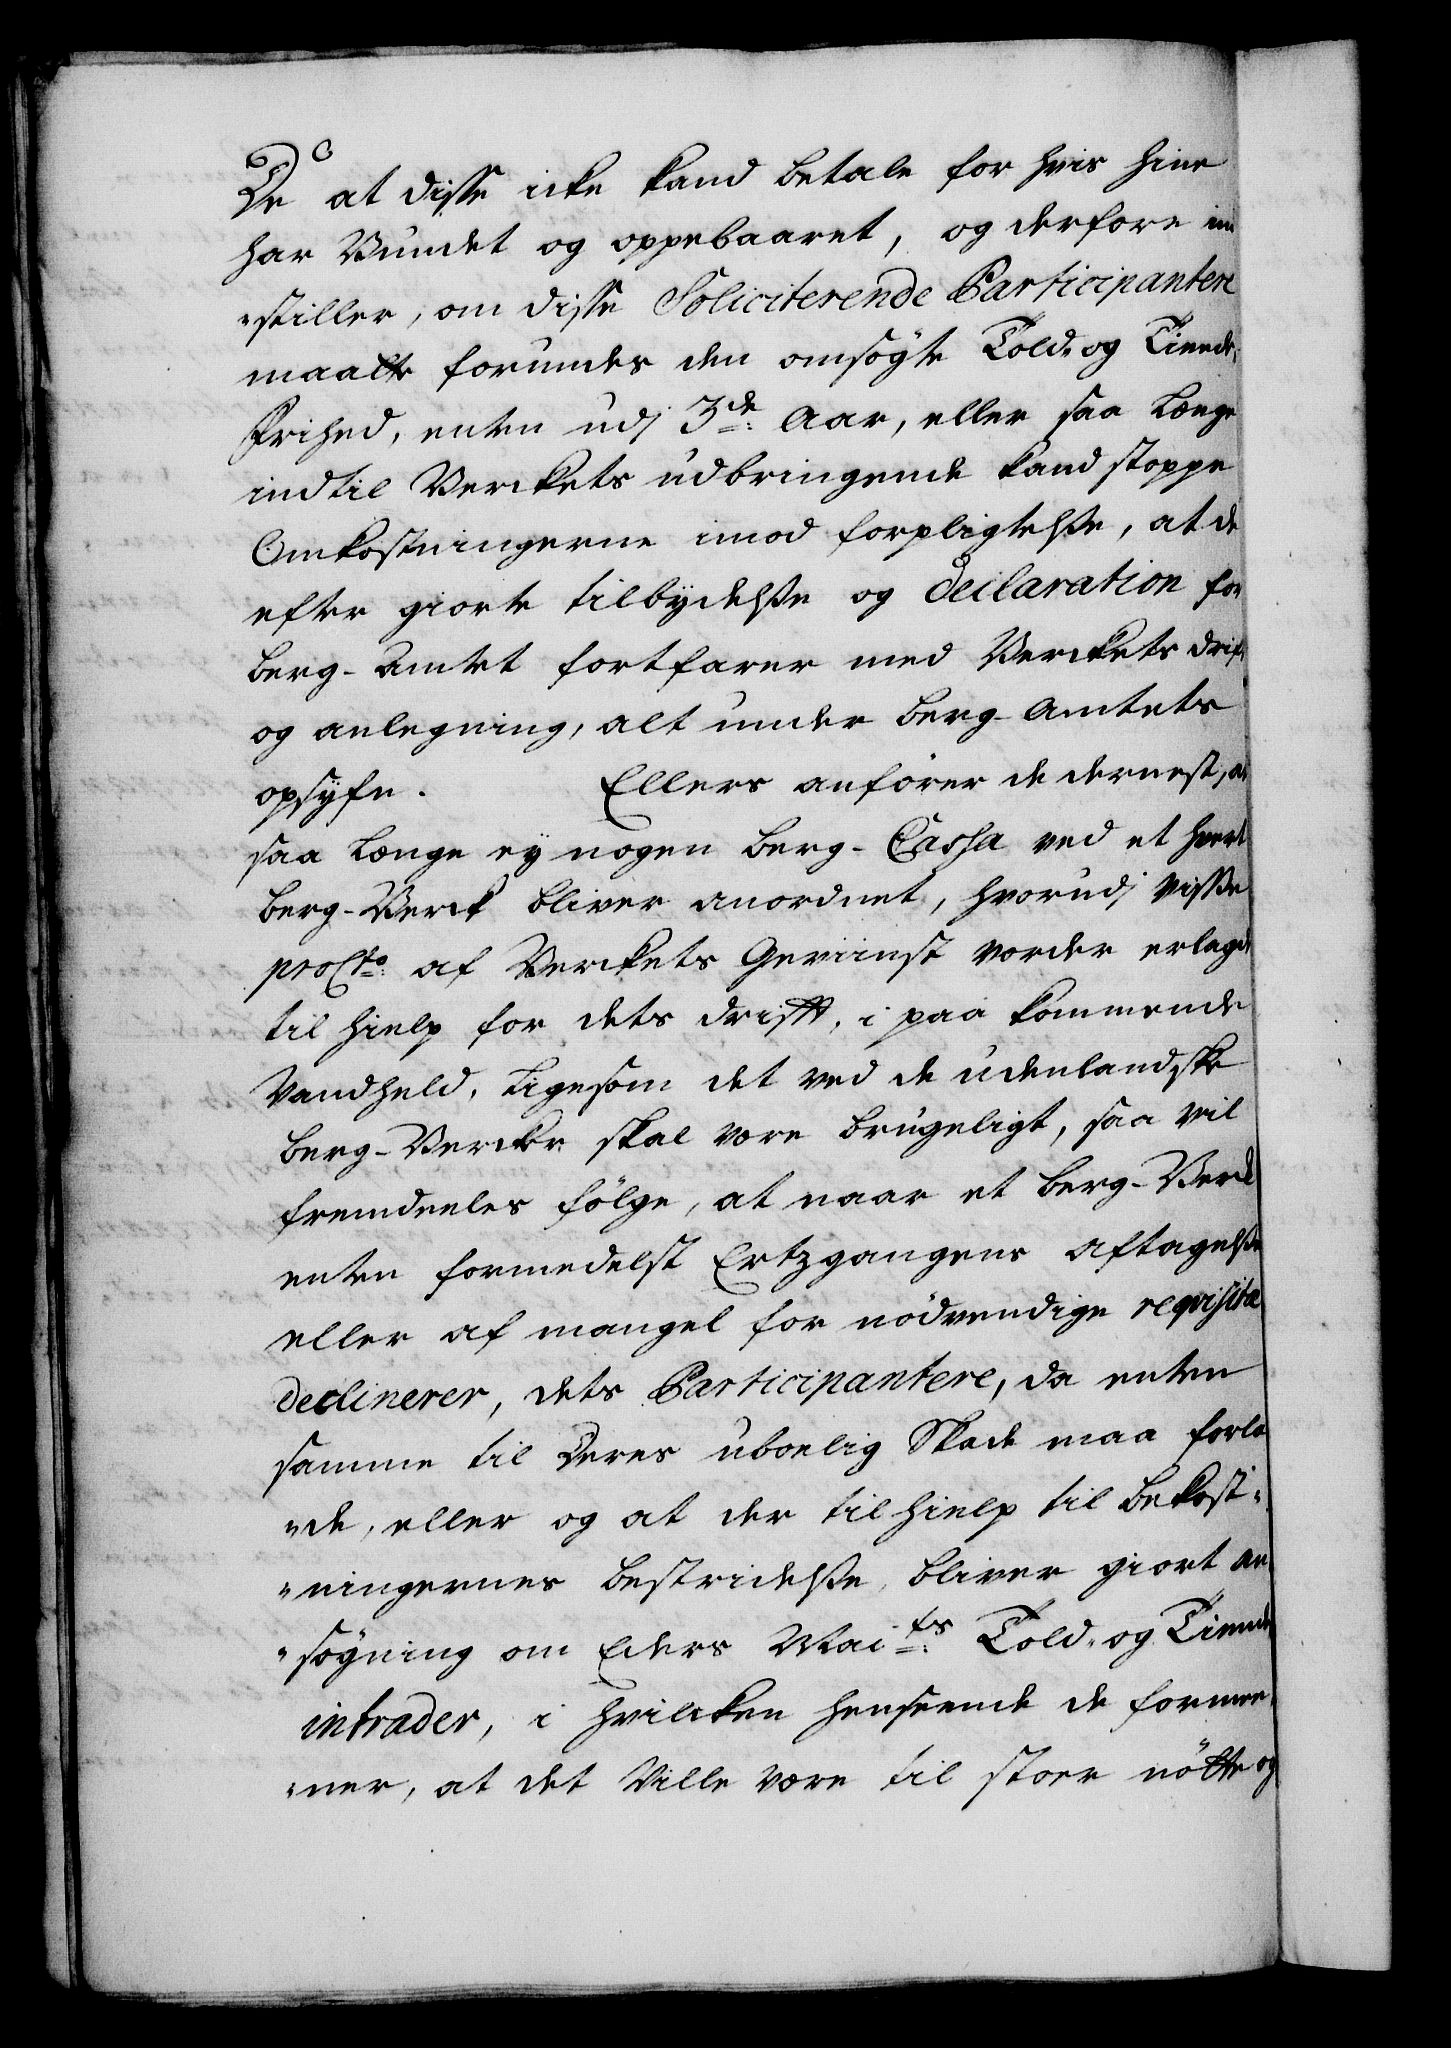 De at disse icke kand betale for hvis hine
har Vundet og oppebaaret, og derfore in
"stiller, om disse Soliciterende Participantere
maatte forundes den omsøgte Told- og Tiende-
Frihed, enten udj 3de Aar, eller saa længe
indtil Verckets udbringende kand stoppe
Omkostningerne imod forpligtelsse, at de
efter giorte tilbydelsse og declaration for
berg-Amtet fortfarer med Verckets drift
og anlegning, alt under berg-Amtets
opsyfn. Ellers anfører de dernest, at
saa længe ey nogen berg-Cassa ved et hvert
berg-Verck bliver anordnet, hvorudj visse
proCto af Verckets Gevinst vorder erlagd
til hielp for dets drifft, i paa kommende
Vandheld, ligesom det ved de udenlandske
berg-Vercker skal være brugeligt, saa vil
fremdeeles følge, at naar et berg-Verck
enten formedelst Ertzgangens aftagelsse
eller af mangel for nødvendige reqvisita
declinerer, dets Participantere, da enten
samme til Deres uboelig Skade maa forla
"de, eller og at der til hielp til bekost-
"ningernes bestridelsse, bliver giort an
"søgning om Eders Maits Told- og Tiende
intrader, i hvilcken henseende de formee-
"ner, at det Ville være til stoer nøtte og